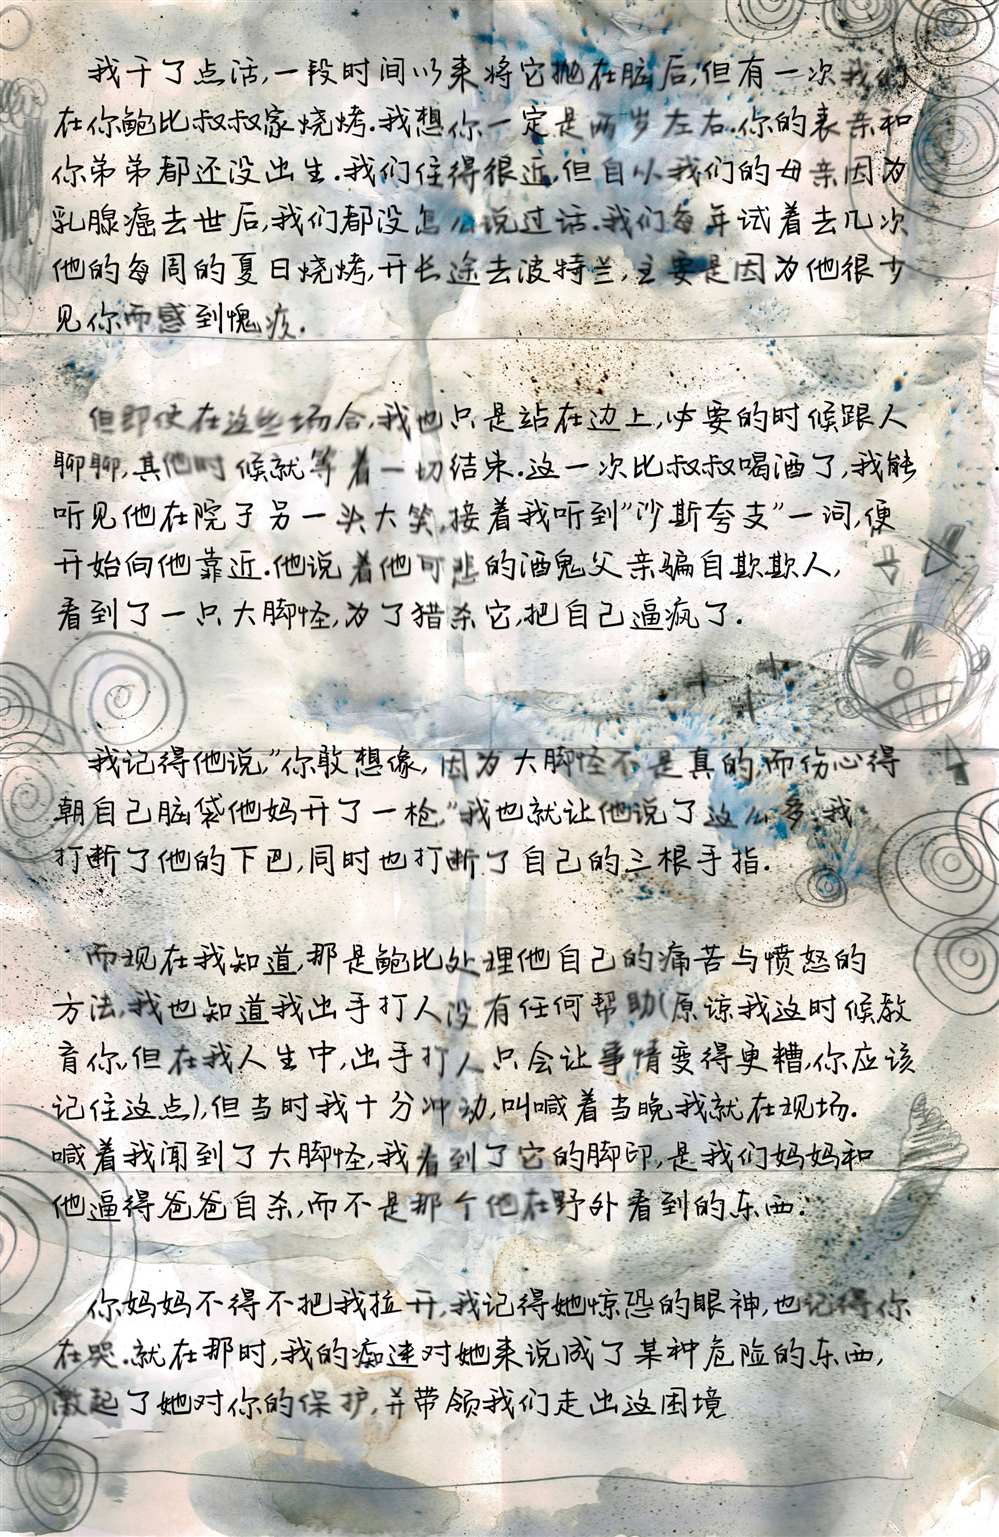 我干了点活,一段时间以来将它抛在脑后,但有一次我们
在你鲍比叔叔家烧烤.我想你一定是两岁左右.你的表亲和
你弟弟都还没出生.我们住得很近,但自从我们的母亲因为
乳腺癌去世后,我们都没怎么说过话.我们每年试着去几次
他的每周的夏日烧烤,开长途去波特兰,主要是因为他很少
见你而感到愧疚.
但即使在这些场合,我也只是站在边上,必要的时候跟人
聊聊,其他时候就等着一切结束.这一次比叔叔喝酒了,我能
听见他在院子另一头大笑,接着我听到"沙斯夸支"一词,便
开始向他靠近.他说着他可悲的酒鬼父亲骗自欺欺人,
看到了一只大脚怪,为了猎杀它,把自己逼疯了.
我记得他说,"你敢想像,因为大脚怪不是真的,而伤心得
朝自己脑袋他妈开了一枪."我也就让他说了这么多.我
打断了他的下巴,同时也打断了自己的三根手指.
而现在我知道,那是鲍比处理他自己的痛苦与愤怒的
方法,我也知道我出手打人没有任何帮助(原谅我这时候教
育你,但在我人生中,出手打人只会让事情变得更糟,你应该
记住这点),但当时我十分冲动,叫喊着当晚我就在现场.
喊着我闻到了大脚怪,我看到了它的脚印,是我们妈妈和
他逼得爸爸自杀,而不是那个他在野外看到的东西.
你妈妈不得不把我拉开,我记得她惊恐的眼神,也记得你
在哭.就在那时,我的痴迷对她来说成了某种危险的东西,
激起了她对你的保护,并带领我们走出这困境